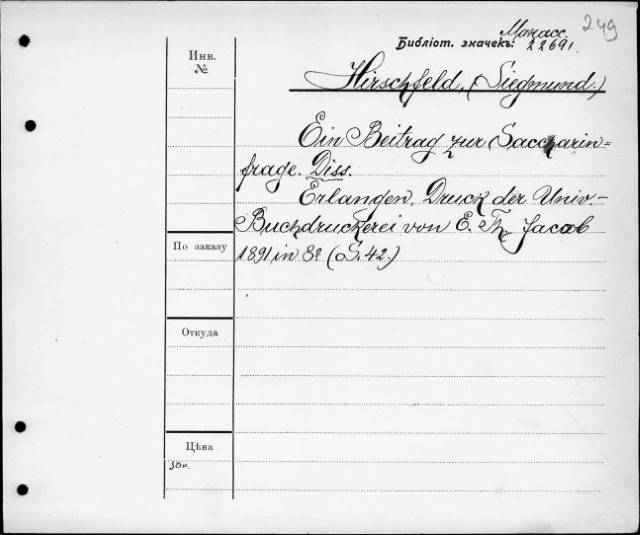 249
Манасс.
Библіот. значекъ: 22691.
Инв.
№
Hirschfeld, (Siegmund.)
Ein Beitrag zur Saccharin=
frage. Diss.
Erlangen, Druck der Univ.-
Buchdruckerei von E. Th. Jacob
По заказу
1891 in 8º (S. 42.)
Откуда
Цѣна